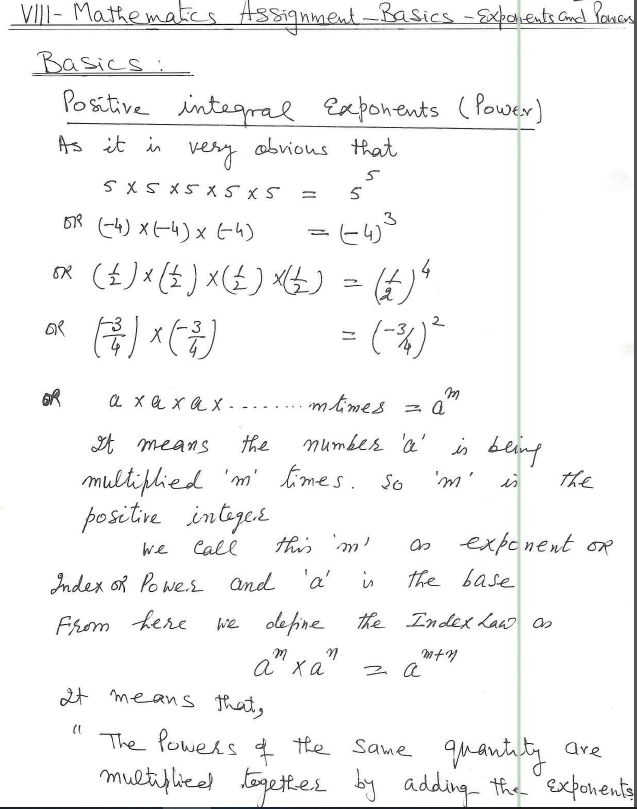 VIII- Mathematics Assignment - Basics - Exponents and Powers
Basics :
Positive integral Exponents (Power)
As it is very obvious that
5 x 5 x 5 x 5 x 5 = 5⁵
OR (-4) x (-4) x (-4) = (-4)³
OR (1/2) x (1/2) x (1/2) x (1/2) = (1/2)⁴
OR (-3/4) x (-3/4) = (-3/4)²
OR a x a x a x -------- m times = aᵐ
It means the number 'a' is being
multiplied 'm' times. So 'm' is the
positive integer
we call this 'm' as exponent OR
Index OR Power and 'a' is the base
From here we define the Index Law as
aᵐ x aⁿ = aᵐ⁺ⁿ
It means that,
" The Powers of the same quantity are
multiplied together by adding the exponents